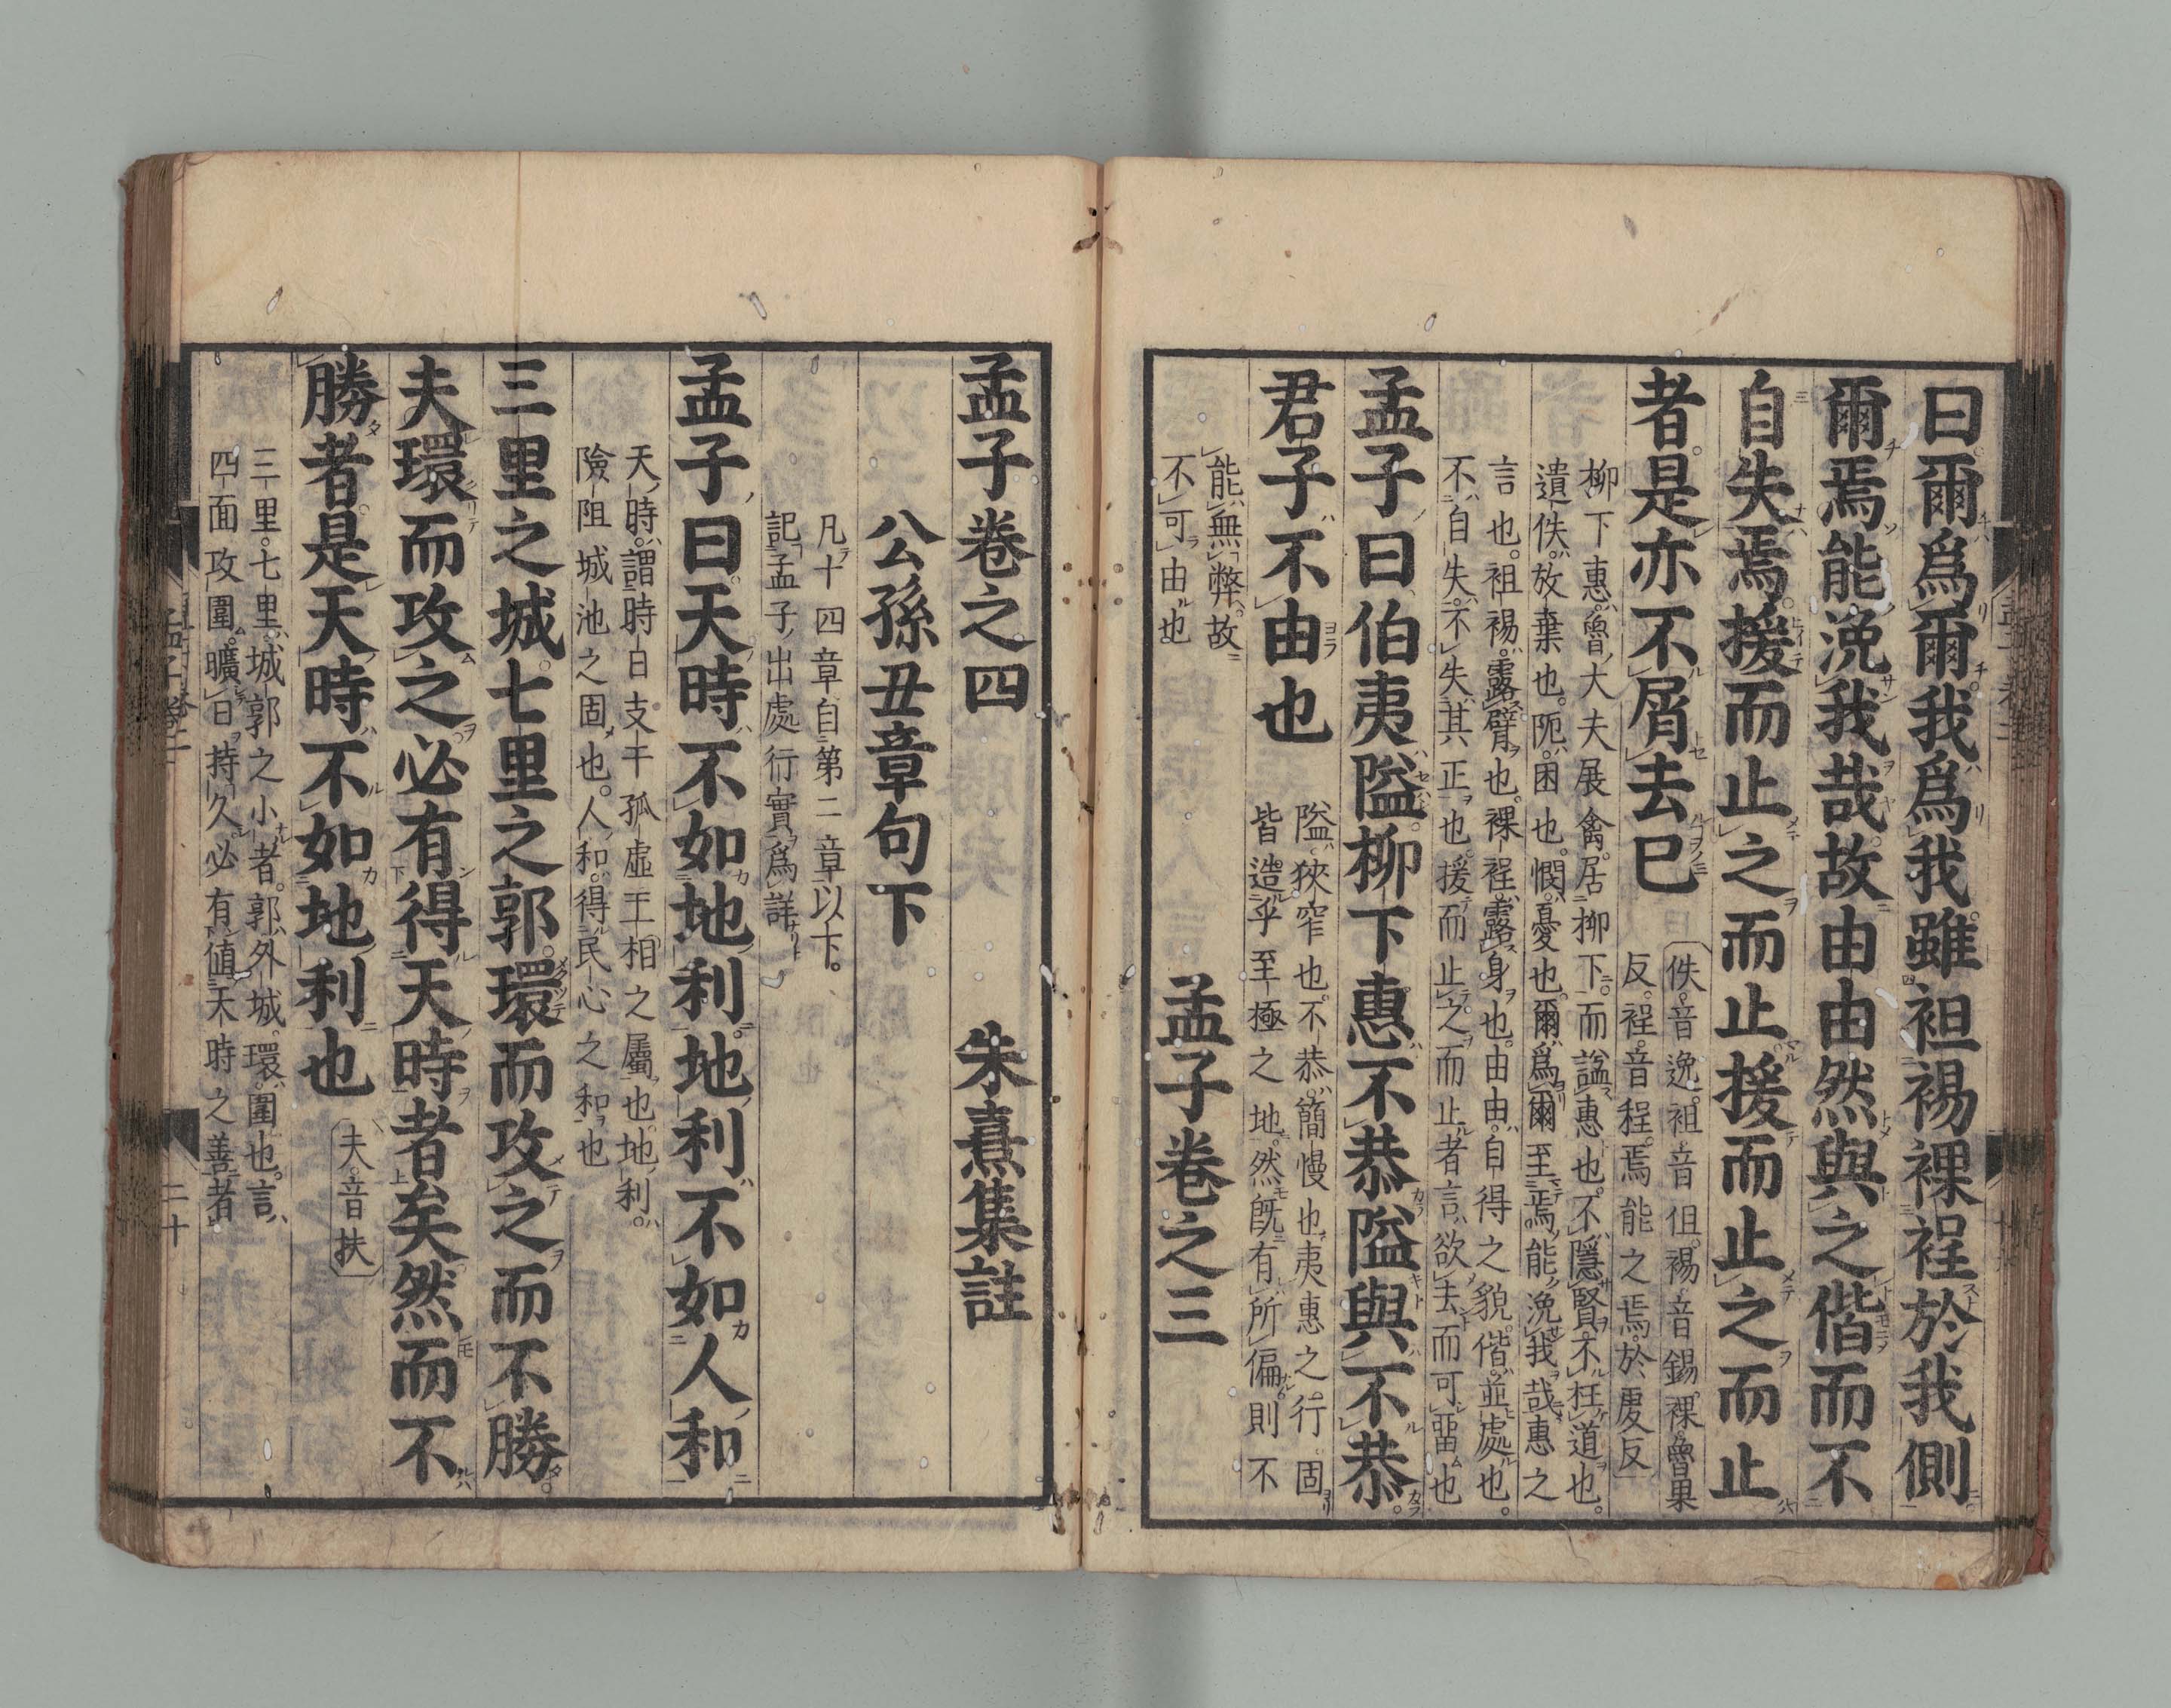 曰爾爲爾我爲我雖袒裼裸裎於我側
爾焉能浼我哉故由由然與之偕而不
自失焉援而止之而止援而止之而止
者是亦不屑去已
佚音逸袒音但裼音錫裸魯果
反裎音程焉能之焉於虔反
柳下惠魯大夫展禽居柳下而謚惠也不隱賢不枉道也
遺佚放棄也阨困也憫憂也爾爲爾至焉能浼我哉惠之
言也袒裼露臂也裸裎露身也由由自得之貌偕並處也
不自失不失其正也援而止之而止者言欲去而可留也
孟子曰伯夷隘柳下惠不恭隘與不恭
君子不由也
隘狹窄也不恭簡慢也夷惠之行固
皆造乎至極之地然旣有所偏則不
能無弊故
不可由也
孟子卷之三
孟子卷之四
朱熹集註
公孫丑章句下
凡十四章自第二章以下
記孟子出處行實爲詳
孟子曰天時不如地利地利不如人和
天時謂時日支干孤虛王相之屬也地利
險阻城池之固也人和得民心之和也
三里之城七里之郭環而攻之而不勝
夫環而攻之必有得天時者矣然而不
勝者是天時不如地利也
夫音扶
三里七里城郭之小者郭外城環圍也言
四面攻圍曠日持久必有値天時之善者
孟子卷二
二十